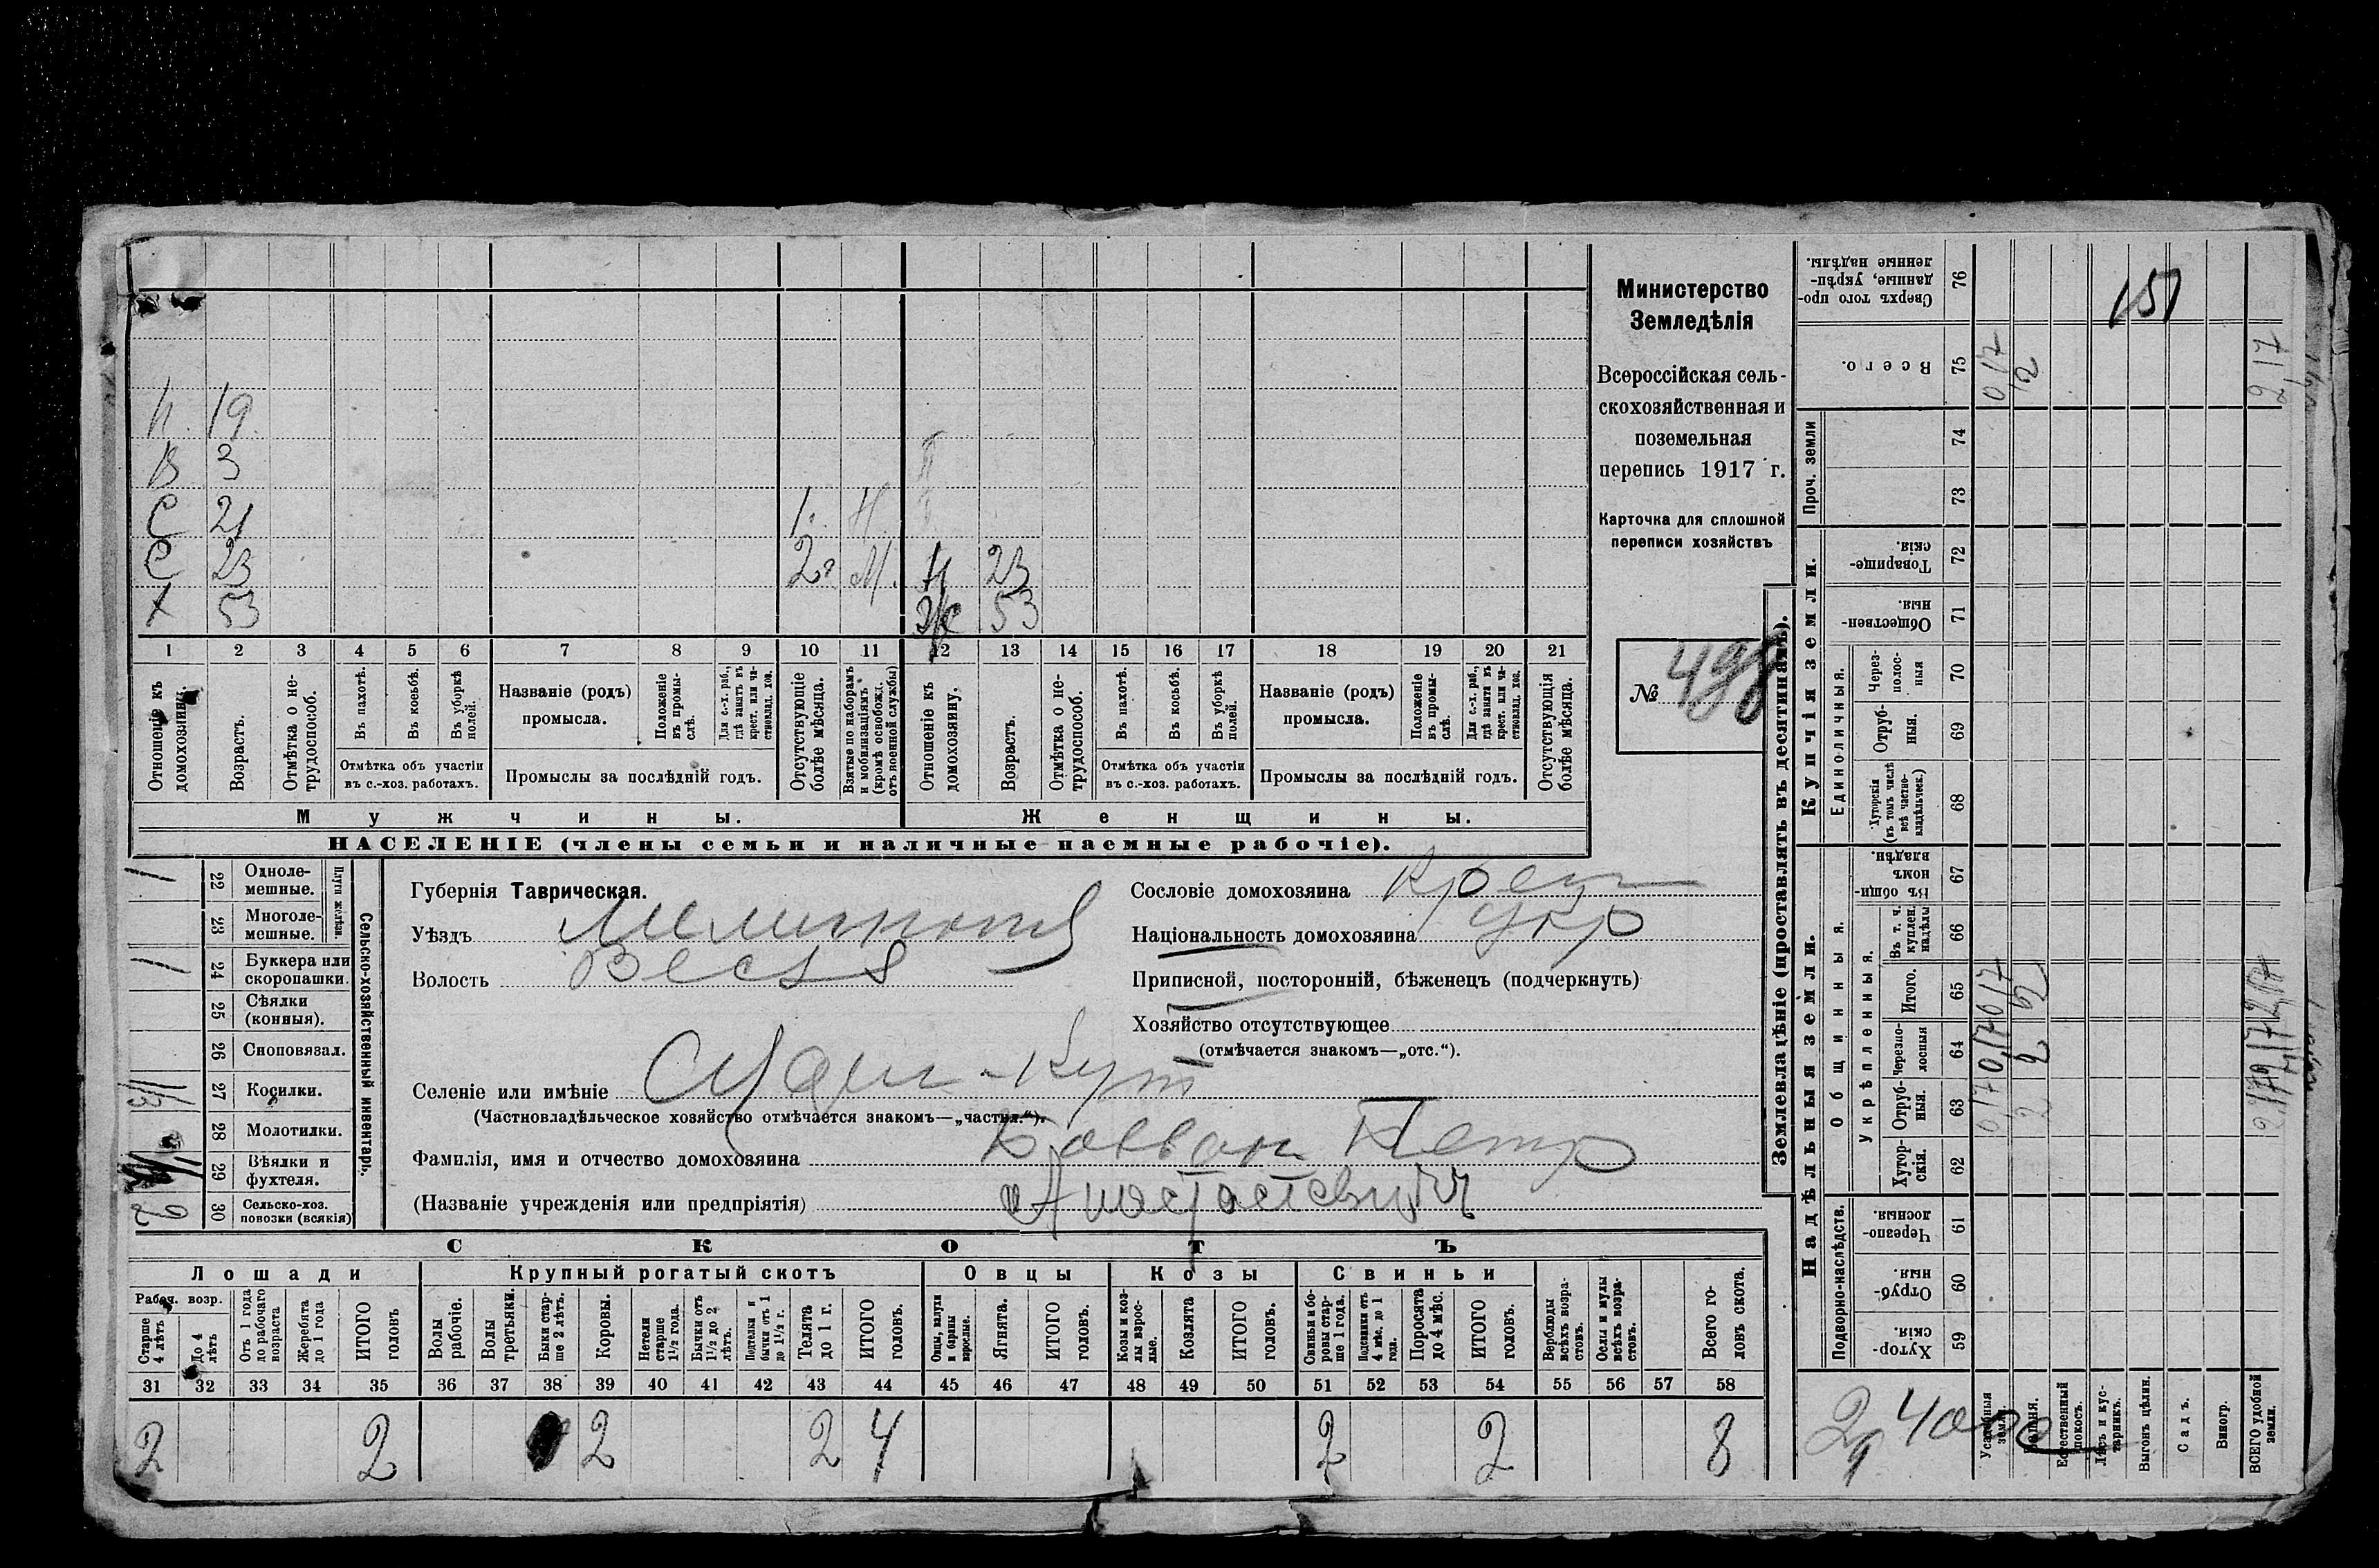 И. 19
В 3
С 21 1. Н.
С 23 2. М. Н 23
Х 53 Ж 53
1 2 3 4 5 6 7 8 9 10 11 12 13 14 15 16 17 18 19 20 21
Отношеніе къ домохозяину.
Возрастъ.
Отмѣтка о не-
трудоспособ.
Въ пахотѣ.
Въ косьбѣ.
Въ уборкѣ полей.
Отмѣтка объ участіи
въ с.-хоз. работахъ.
Названіе (родъ)
промысла.
Положеніе въ промы-
слѣ.
Для с.-х. раб., гдѣ занятъ въ крест. или ча-
стновлад. хоз.
Промыслы за послѣдній годъ.
Отсутствующіе болѣе мѣсяца.
Взятые по наборамъ и мобилизаціямъ (кромѣ освобожд. отъ военной службы)
Отношеніе къ домохозяину.
Возрастъ.
Отмѣтка о не-
трудоспособ.
Въ пахотѣ.
Въ косьбѣ.
Въ уборкѣ полей.
Отмѣтка объ участіи
въ с.-хоз. работахъ.
Названіе (родъ)
промысла.
Положеніе въ промы-
слѣ.
Для с.-х. раб., гдѣ занята въ крест. или ча-
стновлад. хоз.
Промыслы за послѣдній годъ.
Отсутствующія болѣе мѣсяца.
Мужчины. Женщины.
НАСЕЛЕНІЕ (члены семьи и наличные наемные рабочіе).
Министерство
Земледѣлія
Всероссійская сель-
скохозяйственная и
поземельная
перепись 1917 г.
Карточка для сплошной
переписи хозяйствъ
№ 498
Сельско-хозяйственный инвентарь.
Плуги желѣзн.
1 22 Одноле-
мешные.
23 Многоле-
мешные.
1 24 Буккера или
скоропашки.
25 Сѣялки
(конныя).
26 Сноповязал.
1/3 27 Косилки.
28 Молотилки.
29 Вѣялки и
фухтеля.
2 30 Сельско-хоз.
повозки (всякія)
Губернія Таврическая.
Уѣздъ Мелитопол
Волость Весел
Селеніе или имѣніе
(Частновладѣльческое хозяйство отмѣчается знакомъ—„частвл.“).
Фамилія, имя и отчество домохозяина Петр
(Названіе учрежденія или предпріятія)
Сословіе домохозяина Крест
Національность домохозяина Укр
Приписной, посторонній, бѣженецъ (подчеркнуть)
Хозяйство отсутствующее
(отмѣчается знакомъ—„отс.“).
СКОТЪ
Лошади Крупный рогатый скотъ Овцы Козы Свиньи
Рабоч. возр.
Старше 4 лѣтъ
До 4 лѣтъ
Отъ 1 года до рабочаго возраста
Жеребята до 1 года
ИТОГО головъ
Волы рабочіе.
Волы третьяки.
Быки стар-
ше 2 лѣтъ.
Коровы.
Нетели старше 1½ года.
Бычки отъ 1½ до 2 лѣтъ.
Подтелки и бычки отъ 1 до 1½ г.
Телята до 1 г.
ИТОГО головъ.
Овцы, валухи и бараны взрослые.
Ягнята.
ИТОГО головъ.
Козы и коз-
лы взрос-
лые.
Козлята
ИТОГО головъ.
Свиньи и бо-
ровы стар-
ше 1 года.
Подсвинки отъ 4 мѣс. до 1 года.
Поросята до 4 мѣс.
ИТОГО головъ.
Верблюды всѣхъ возра-
стовъ.
Ослы и мулы всѣхъ возра-
стовъ.
Всего го-
ловъ скота.
31 32 33 34 35 36 37 38 39 40 41 42 43 44 45 46 47 48 49 50 51 52 53 54 55 56 57 58
2 2 2 2 4 2 2 8
Землевладѣніе (проставлять въ десятинахъ).
Надѣльныя земли. Купчія земли. Проч. земли
Подворно-наслѣдств.
Общинныя.
Укрѣпленныя.
Единоличныя.
Хутор-
скія. 59
Отруб-
ныя. 60
Черезпо-
лосныя 61
Хутор-
скія. 62
Отруб-
ныя. 63 0,17 2
Черезпо-
лосныя 64 0,17 2
Итого. 65 0,17 2
Въ т. ч. куплен. надѣлы 66
Въ общин-
номъ владѣн. 67
Хуторскія (въ томъ числѣ всѣ частно-
владѣльческ.) 68
Отруб-
ныя. 69
Через-
полос-
ныя 70
Обществен-
ныя. 71
Товарище-
скія. 72
73
74
Всего. 75 0,17 2 2,17
Сверхъ того про-
данные, укрѣп-
ленные надѣлы. 76
151
Усадебныя земли.
Пашня.
Естественный покосъ.
Лѣсъ и кус-
тарникъ.
Выгонъ цѣлин.
Садъ.
Виногр.
ВСЕГО удобной земли.